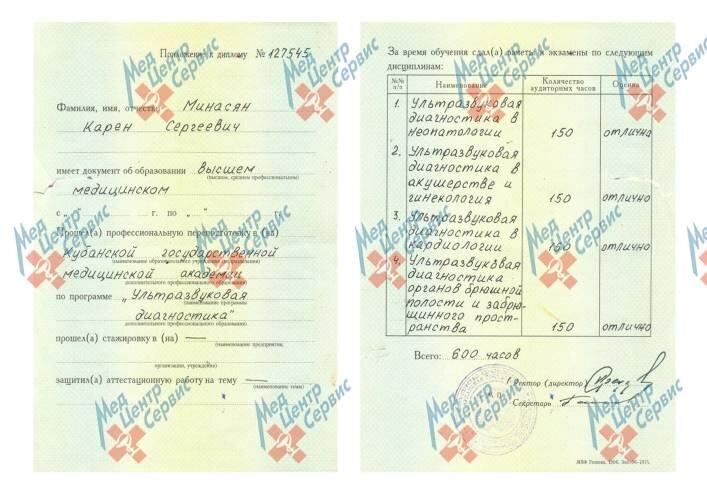 Приложение к диплому № 127545
Фамилия, имя, отчество Минасян
Карен Сергеевич
имеет документ об образовании высшем
(высшем, среднем профессиональном)
медицинском
с „ “ г. по „ “ г.
Прошел(а) профессиональную переподготовку в (на)
Кубанской государственной
(наименование образовательного учреждения (подразделения)
медицинской академии
дополнительного профессионального образования)
по программе „Ультразвуковая
(наименование программы
диагностика"
дополнительного профессионального образования)
прошел(а) стажировку в (на) —
(наименование предприятия,
организации, учреждения)
защитил(а) аттестационную работу на тему —
(наименование темы)
За время обучения сдал(а) зачеты и экзамены по следующим
дисциплинам:
№№ п/п Наименование Количество аудиторных часов Оценка
1. Ультразвуковая
диагностика в
неонатологии 150 отлично
2. Ультразвуковая
диагностика в
акушерстве и
гинекология 150 отлично
3. Ультразвуковая
диагностика в
кардиологии 150 отлично
4. Ультразвуковая
диагностика
органов брюшной
полости и забрю-
шинного прост-
ранства 150 отлично
Всего: 600 часов
Ректор (директор)
Секретарь
Мед Центр Сервис
Мед Центр Сервис
Мед Центр Сервис
Мед Центр Сервис
Мед Центр Сервис
Мед Центр Сервис